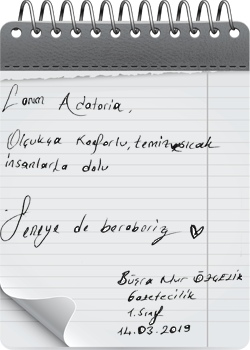 Canım Adatoria,
Olçukça konforlu, temiz, sıcak
insanlarla dolu
Seneye de beraberiz ♡
Büşra Nur ÖZÇELİK
Gazetecilik
1.Sınıf
14.03.2019